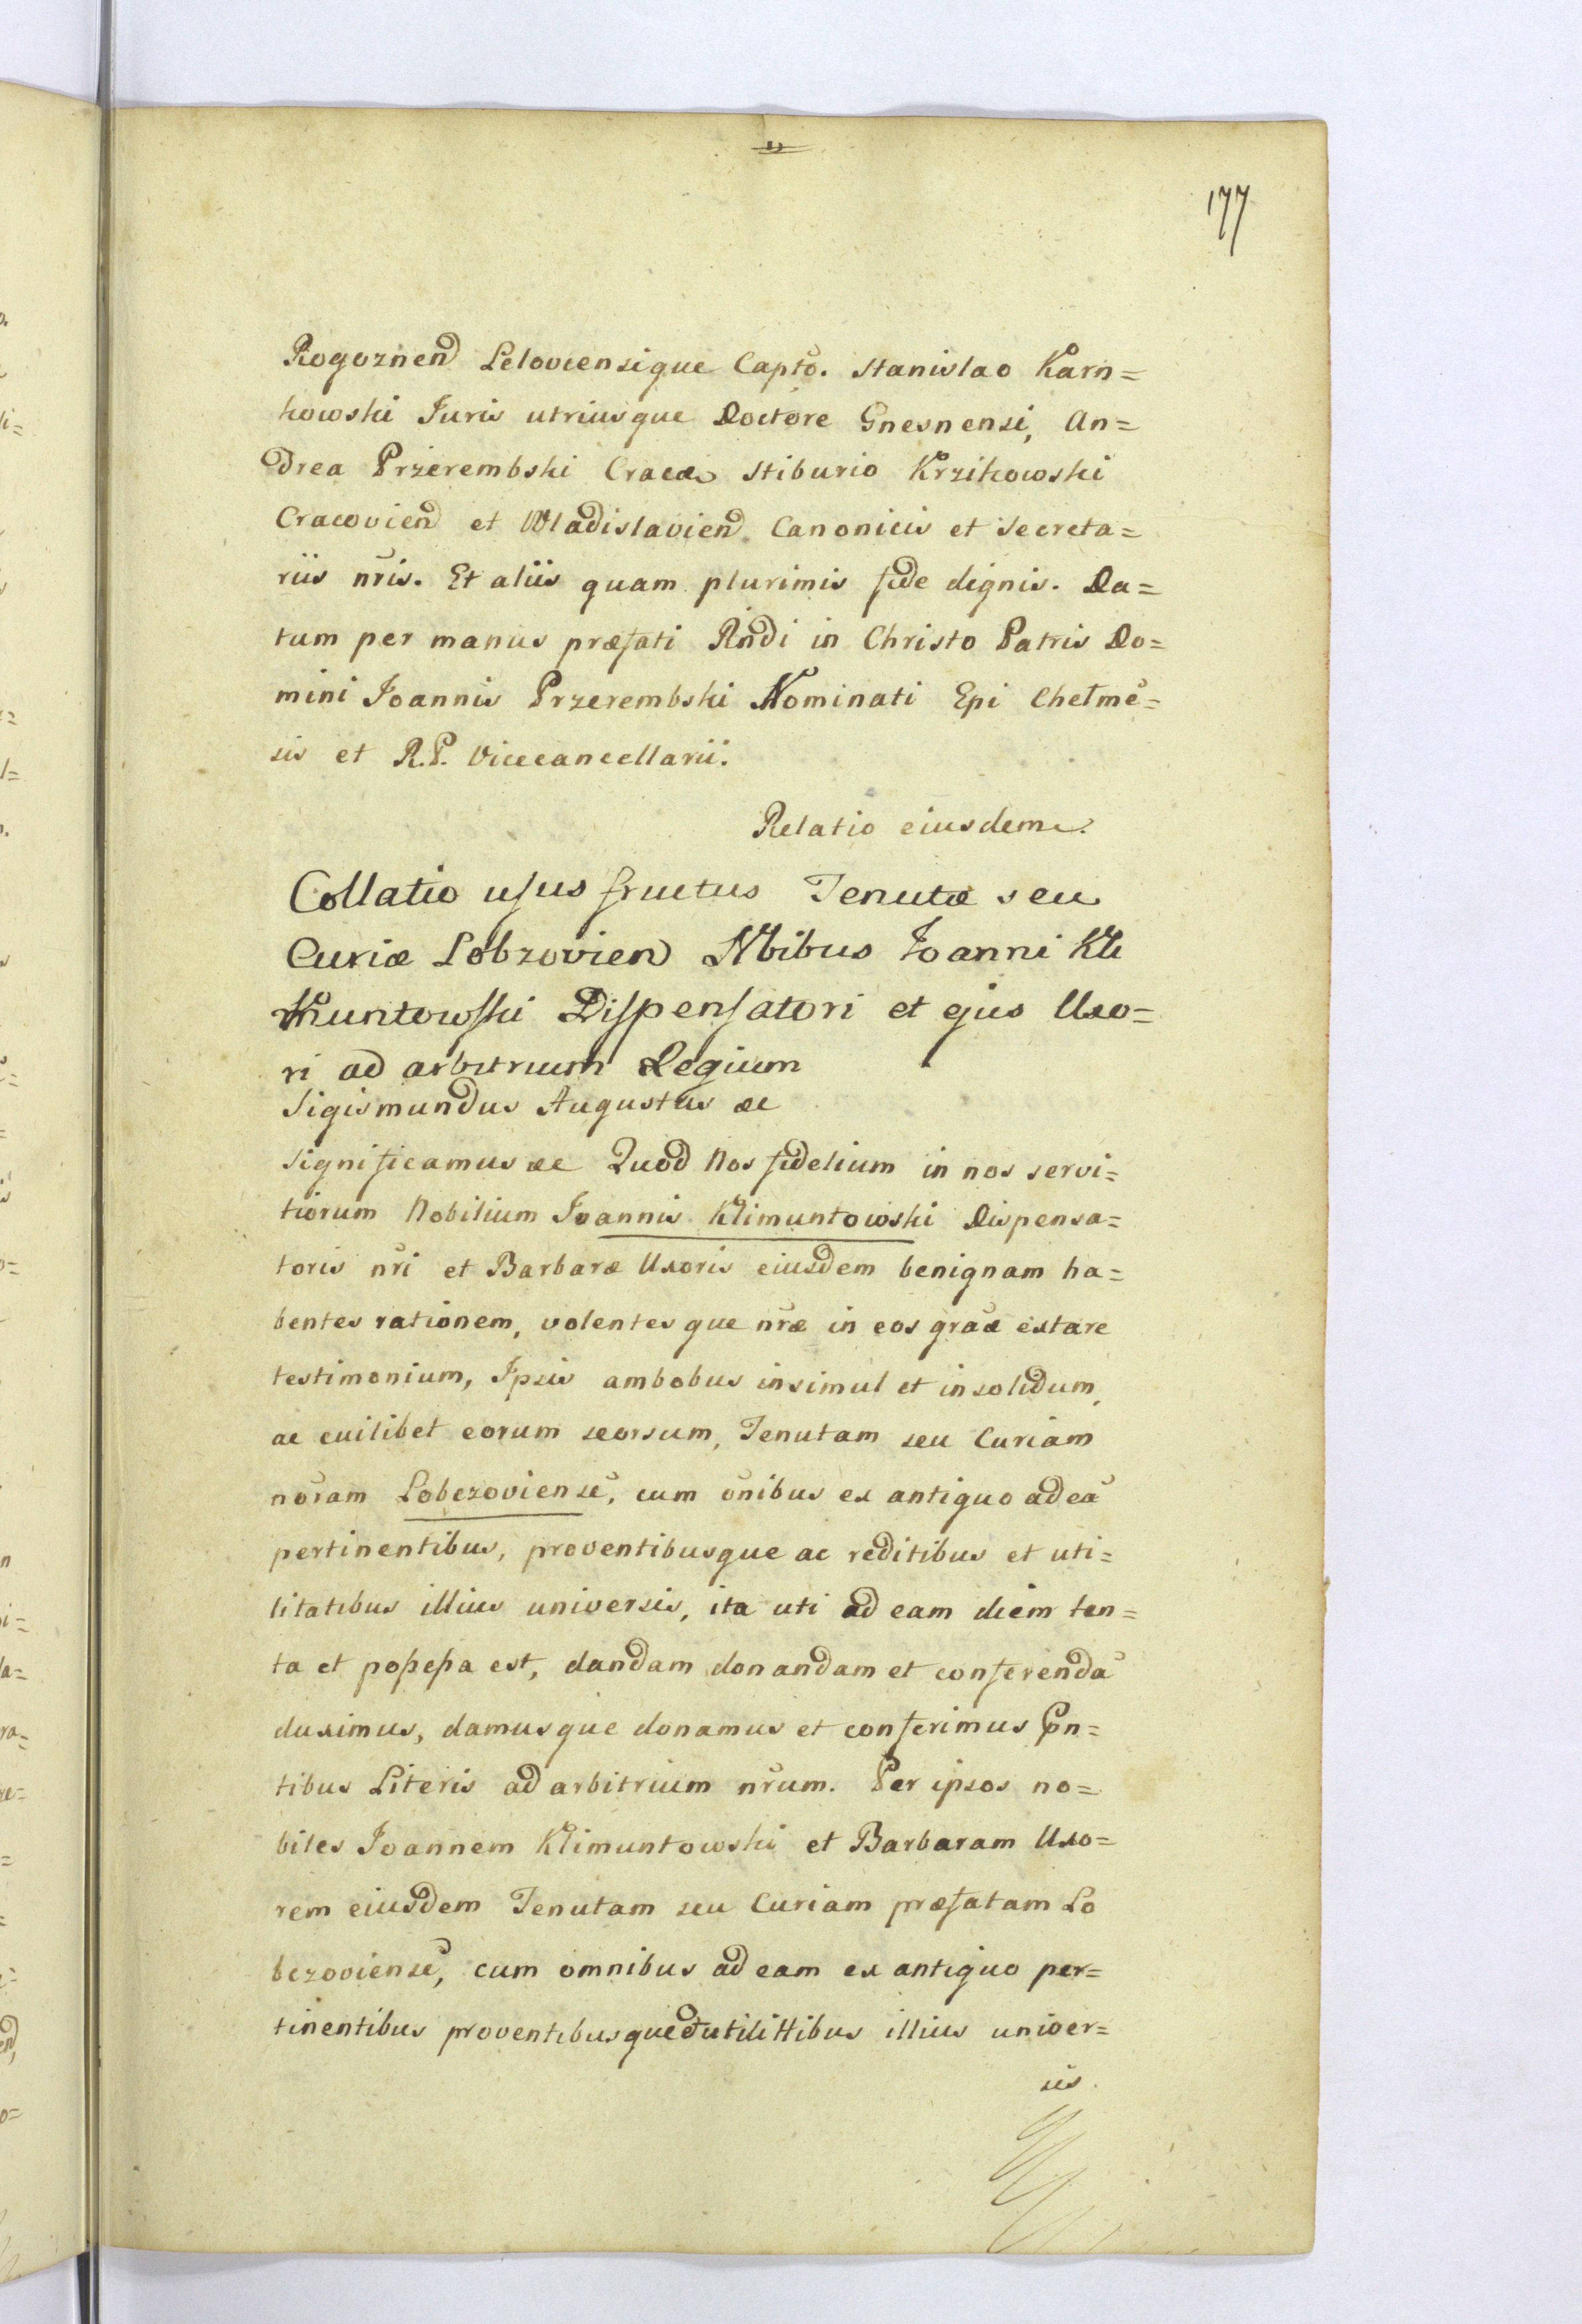 177
Rogoznend Leloviensique Capto. Stanislao Karn=
kowski Juris utriusque Doctore Gnesnensi, An=
drea Przerembski Craca Stiburio Krzikowski
Cracoviend et Wladislaviend. Canonicis et Secreta=
riis nris. Et aliis quam plurimis fide dignis. Da=
tum per manus præfati Rndi in Christo Patris Do=
mini Joannis Przerembski Nominati Epi Chełmē=
sis et R.P. Vicecancellarii.
Relatio eiusdem.
Collatio usus fructus Tenutæ seu
Curiæ Lobzovien Nbibus Joanni Kli
muntowski Dispensatori et ejus Uxo=
ri ad arbitrium Regium
Sigismundus Augustus æc
Significamus æc Quod Nos fidelium in nos servi=
tiorum Nobilium Joannis Klimuntowski Dispensa=
toris nri et Barbaræ Uxoris eiusdem benignam ha=
bentes rationem, volentes que nræ in eos graæ extare
testimonium, Ipsis ambobus insimul et insolidum,
ac cuilibet eorum seorsum, Tenutam seu Curiam
noram Lobczoviensē, cum onibus ex antiquo ad eā
pertinentibus, proventibusque ac reditibus et uti=
litatibus illius universis, ita uti ad eam diem ten=
ta et possessa est, dandam donandam et conferendā
duximus, damusque donamus et conferimus Pn=
tibus Literis ad arbitrium nrum. Per ipsos no=
biles Joannem Klimuntowski et Barbaram Uxo=
rem eiusdem Tenutam seu Curiam præfatam Lo
bczoviensē, cum omnibus ad eam ex antiquo per=
tinentibus proventibusque et utilittibus illius univer=
sis.